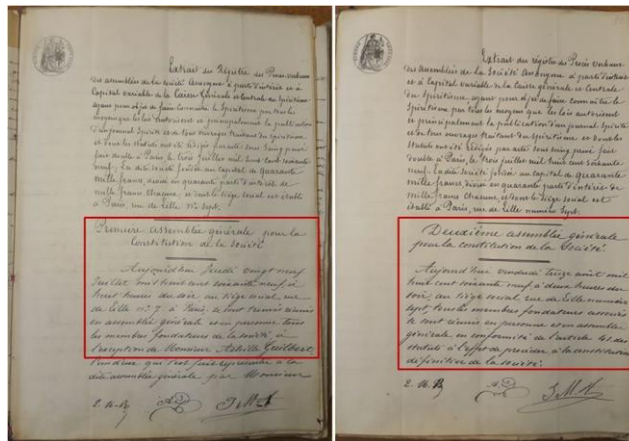 Extrait du Régistre des Procès verbaux
des assemblées de la société Anonyme à parts d'intérêt et à
Capital variable de la Caisse Générale et Centrale du Spiritisme
ayant pour objet de faire connaître le Spiritisme par tous les
moyens que les lois autorisent et principalement la publication
d'un journal Spirite et de tous ouvrages traitant du Spiritisme
et dont les Statuts ont été rédigés par acte sous seing privé
fait double à Paris, le trois juillet mil huit cent soixante
neuf. La dite société fondée au capital de quarante
mille francs, divisé en quarante parts d'intérêt de
mille francs chacune, et dont le siège social est établi
à Paris, rue de Lille N° Sept.
Première assemblée générale pour la
Constitution de la Société
Aujourd'hui Jeudi vingt neuf
Juillet mil huit cent soixante neuf, à
huit heures du soir, au siège social, rue
de Lille N° 7, à Paris, se sont réunis
en assemblée générale et en personne tous
les membres fondateurs de la société, à
l'exception de Monsieur Achille Guilbert,
d'Rouen qui s'est fait représenter à la
dite assemblée générale par Monsieur
Extrait du régistre des Procès verbaux
des assemblées de la Société Anonyme à parts d'intérêt
et à Capital variable de la Caisse générale et Centrale
du Spiritisme, ayant pour objet de faire connaître le
Spiritisme par tous les moyens que les lois autorisent
et principalement la publication d'un journal Spirite
et de tous ouvrages traitant du Spiritisme et dont les
Statuts ont été rédigés par acte sous seing privé, fait
double à Paris, le trois juillet mil huit cent soixante
neuf. La dite société fondée au capital de quarante
mille francs, divisé en quarante parts d'intérêt de
mille francs chacune, et dont le siège social est
établi à Paris, rue de Lille numéro Sept.
Deuxième assemblée générale
pour la constitution de la Société.
Aujourd'hui vendredi treize août mil
huit cent soixante neuf à deux heures du
soir, au siège social, rue de Lille numéro
sept, tous les membres fondateurs associés
se sont réunis en personne et en assemblée
générale en conformité de l'article 41 des
statuts à l'effet de procéder à la constitution
définitive de la Société.